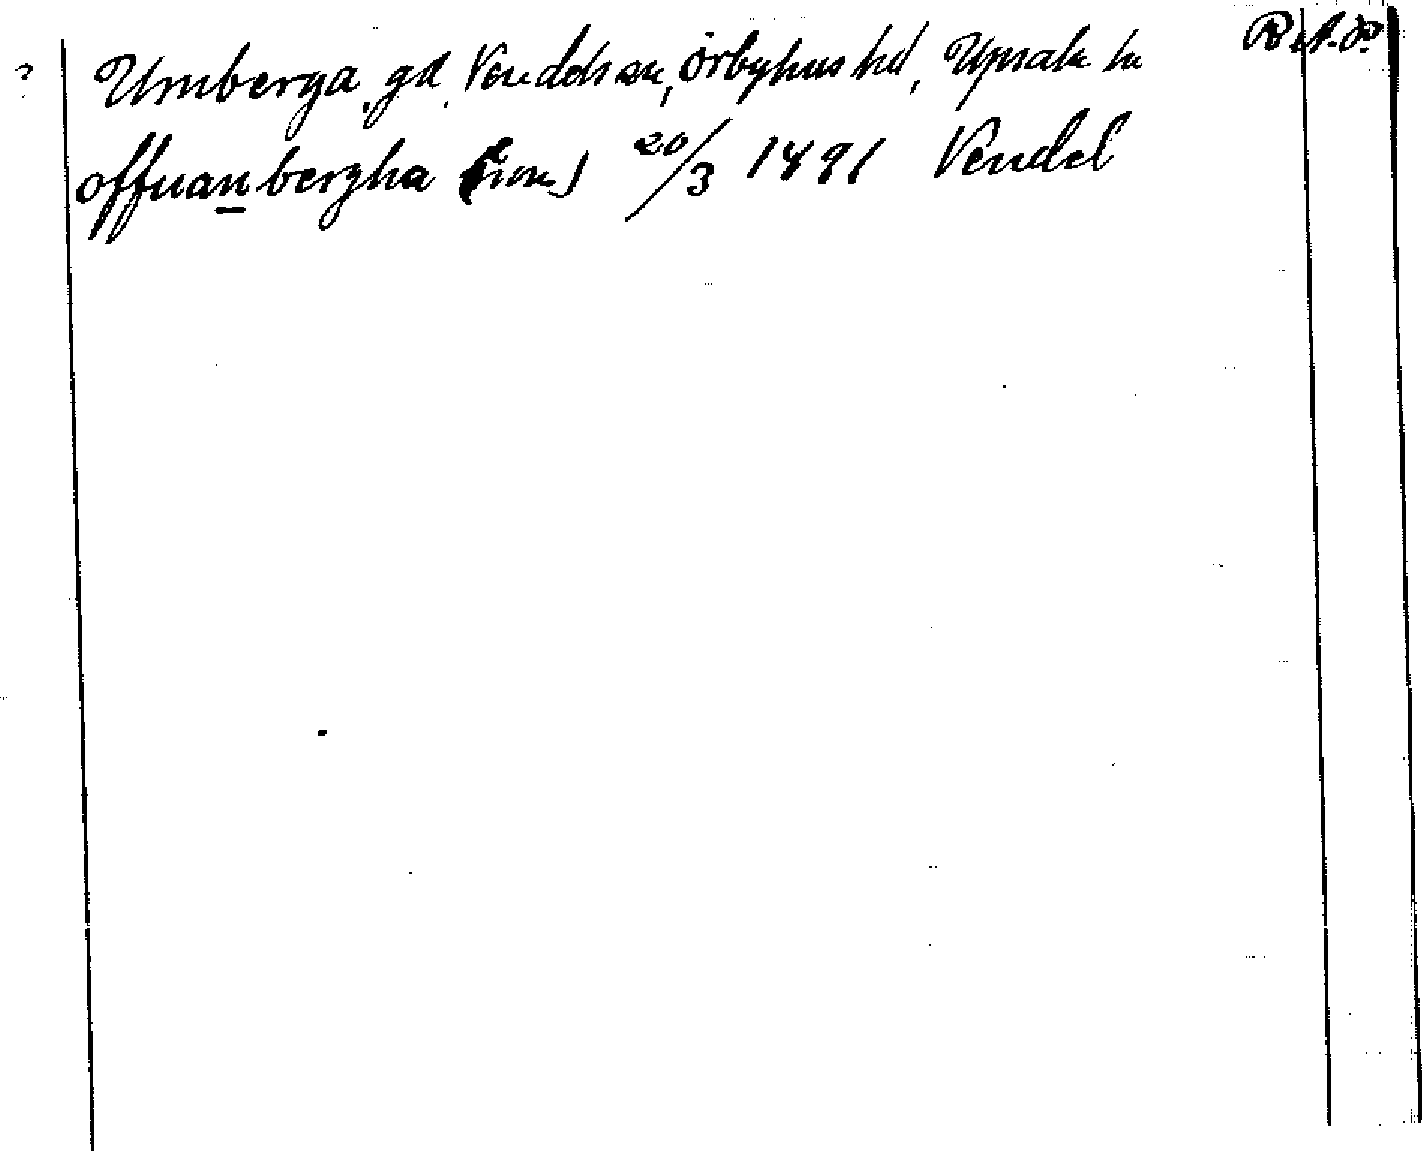 ? Umberga, gd, Vendels sn, Örbyhus hd, Upsala ln R.A.P.
offuanbergha (sion) 20/3 1491 Vendel